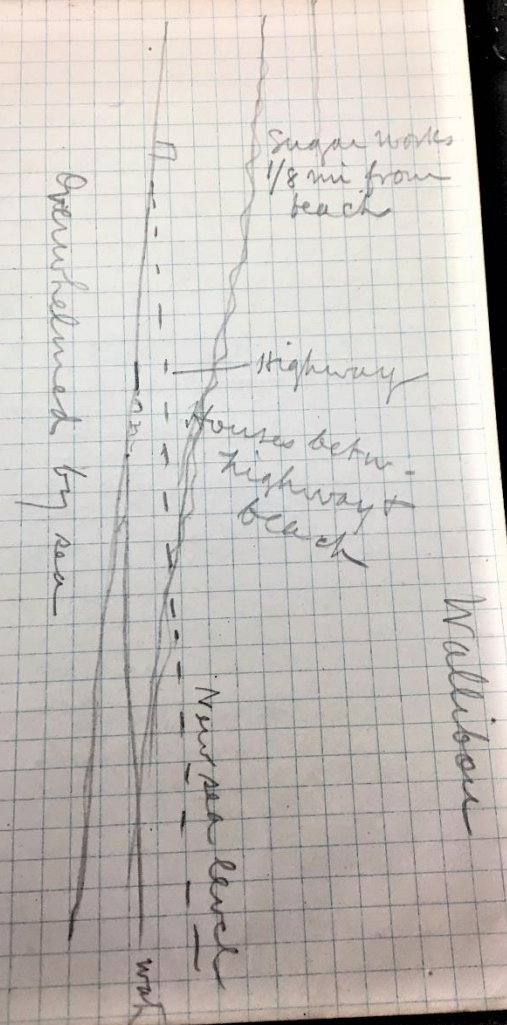 Sugar works
1/8 mi from
beach
Highway
Houses betw.
highway &
beach
Wallibou
Overwhelmed by sea
New sea level